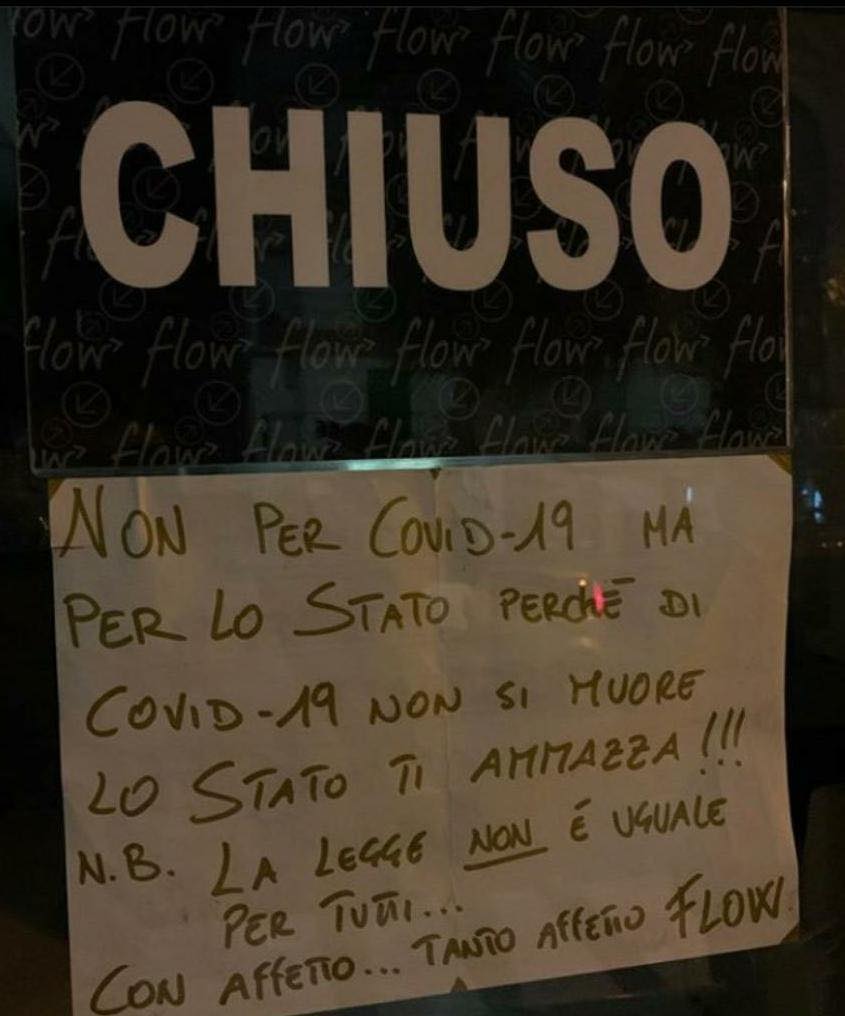 flow flow flow flow flow flow
CHIUSO
flow flow flow flow flow flow
flow flow flow flow flow
NON PER COVID-19 MA
PER LO STATO PERCHÉ DI
COVID-19 NON SI MUORE
LO STATO TI AMMAZZA!!!
N.B. LA LEGGE NON É UGUALE
PER TUTTI...
CON AFFETTO... TANTO AFFETTO FLOW.